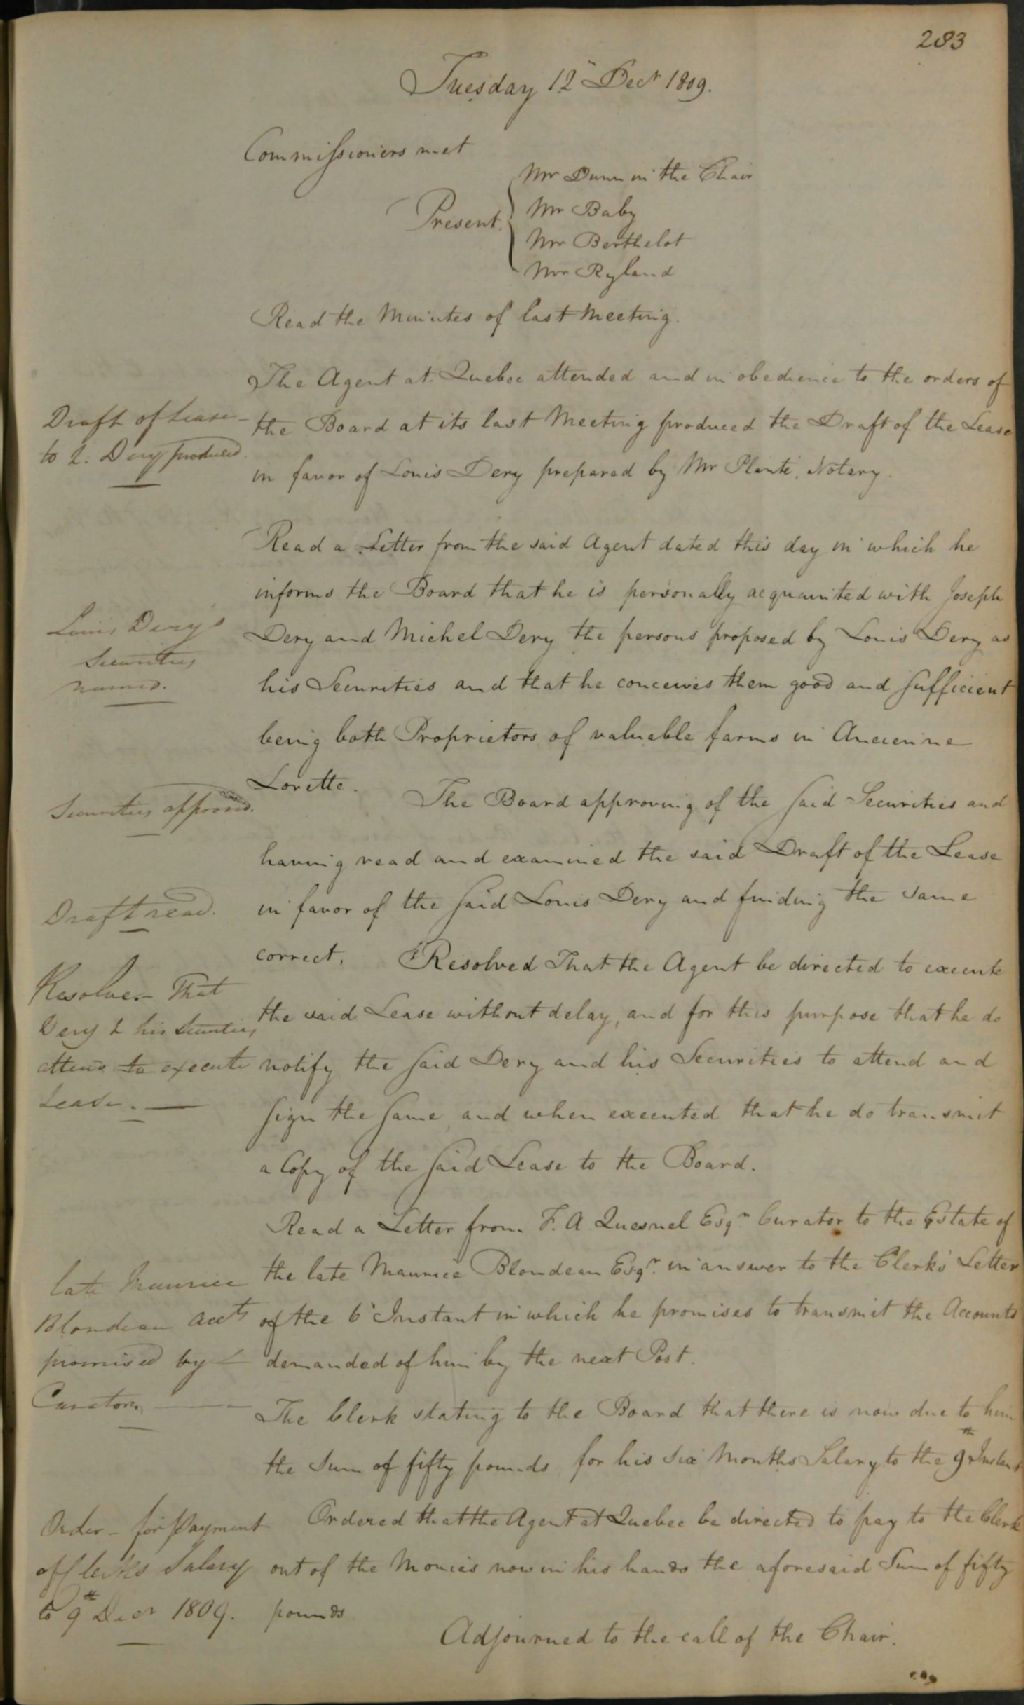 283
Tuesday 12 Decr 1809.
Commissioners met
Present.
Mr Dunn in the Chair
Mr Baby
Mr Berthelot
Mr Ryland
Read the Minutes of last Meeting.
The Agent at Quebec attended and in obedience to the orders of
Draft of Lease
the Board at its last Meeting produced the Draft of the Lease
to L. Dery produced.
in favor of Louis Dery prepared by Mr Planté, Notary.
Read a Letter from the said Agent dated this day in which he
informs the Board that he is personally acquainted with Joseph
Louis Dery's
Securities
named.
Dery and Michel Dery the persons proposed by Louis Dery as
his Securities and that he conceives them good and sufficient
being both Proprietors of valuable farms in Ancienne
Lorette. The Board approving of the said Securities and
Securities approved.
having read and examined the said Draft of the Lease
Draft read.
in favor of the said Louis Dery and finding the same
correct. Resolved That the Agent be directed to execute
Resolve - That
Dery & his Securities
attend to execute
Lease.
the said Lease without delay, and for this purpose that he do
notify the said Dery and his Securities to attend and
sign the same and when executed that he do transmit
a Copy of the said Lease to the Board.
Read a Letter from F. A. Quesnel Esqr Curator to the Estate of
late Maurice
Blondeau Accts
promised by
Curator.
the late Maurice Blondeau Esqr. in answer to the Clerk's Letter
of the 6 Instant in which he promises to transmit the Accounts
demanded of him by the next Post.
The Clerk stating to the Board that there is now due to him
the Sum of fifty pounds for his six Months Salary to the 9th Instant
Order - for Payment
of Clerks Salary
to 9th Decr 1809.
Ordered that the Agent at Quebec be directed to pay to the Clerk
out of the Monies now in his hands the aforesaid Sum of fifty
pounds
Adjourned to the call of the Chair.